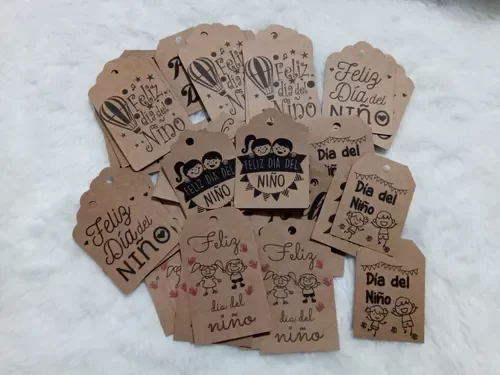 Feliz
día del
Niño
Feliz
día del
Niño
Feliz
día del
Niño
Feliz
Día del
NIÑO
FELIZ DIA DEL
NIÑO
FELIZ DIA DEL
NIÑO
Día del
Día del
Niño
Feliz
Día del
NIÑO
Feliz
día del
niño
Feliz
día del
niño
Día del
Niño